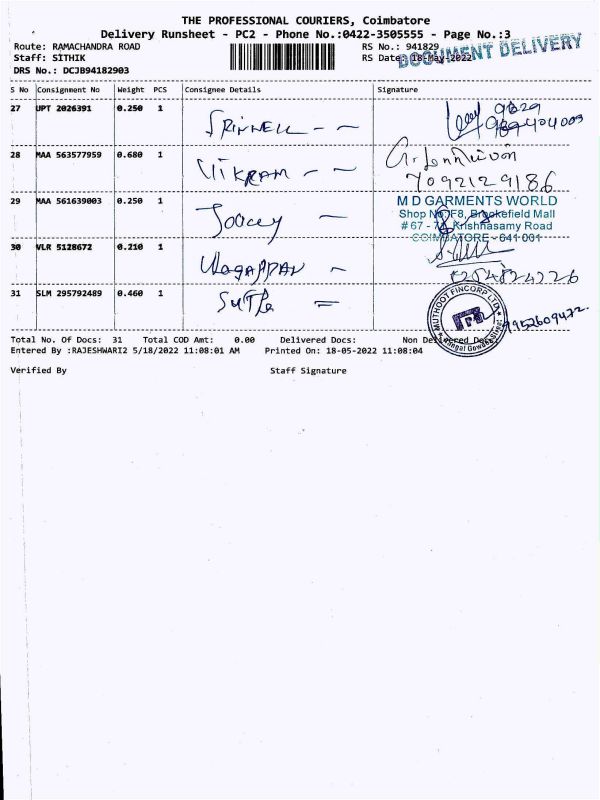 THE PROFESSIONAL COURIERS, Coimbatore
Delivery Runsheet - PC2 - Phone No.:0422-3505555 - Page No.:3
Route: RAMACHANDRA ROAD
Staff: SITHIK
DRS No.: DCJB94182903
RS No.: 941829
RS Date: 18-May-2022
DOCUMENT DELIVERY
S No Consignment No Weight PCS Consignee Details Signature
27 UPT 2026391 0.250 1
9829
28 MAA 563577959 0.680 1 VIKRAM - -
7092129186
29 MAA 561639003 0.250 1
M D GARMENTS WORLD
Shop No F8, Brookefield Mall
Krishnasamy Road
COIMBATORE - 641 001
30 VLR 5128672 0.210 1
31 SLM 295792489 0.460 1
MUTHOOT FINCORP LTD
9952609472
Total No. Of Docs: 31 Total COD Amt: 0.00 Delivered Docs: Non Delivered Docs:
Entered By :RAJESHWARI2 5/18/2022 11:08:01 AM Printed On: 18-05-2022 11:08:04
Verified By Staff Signature